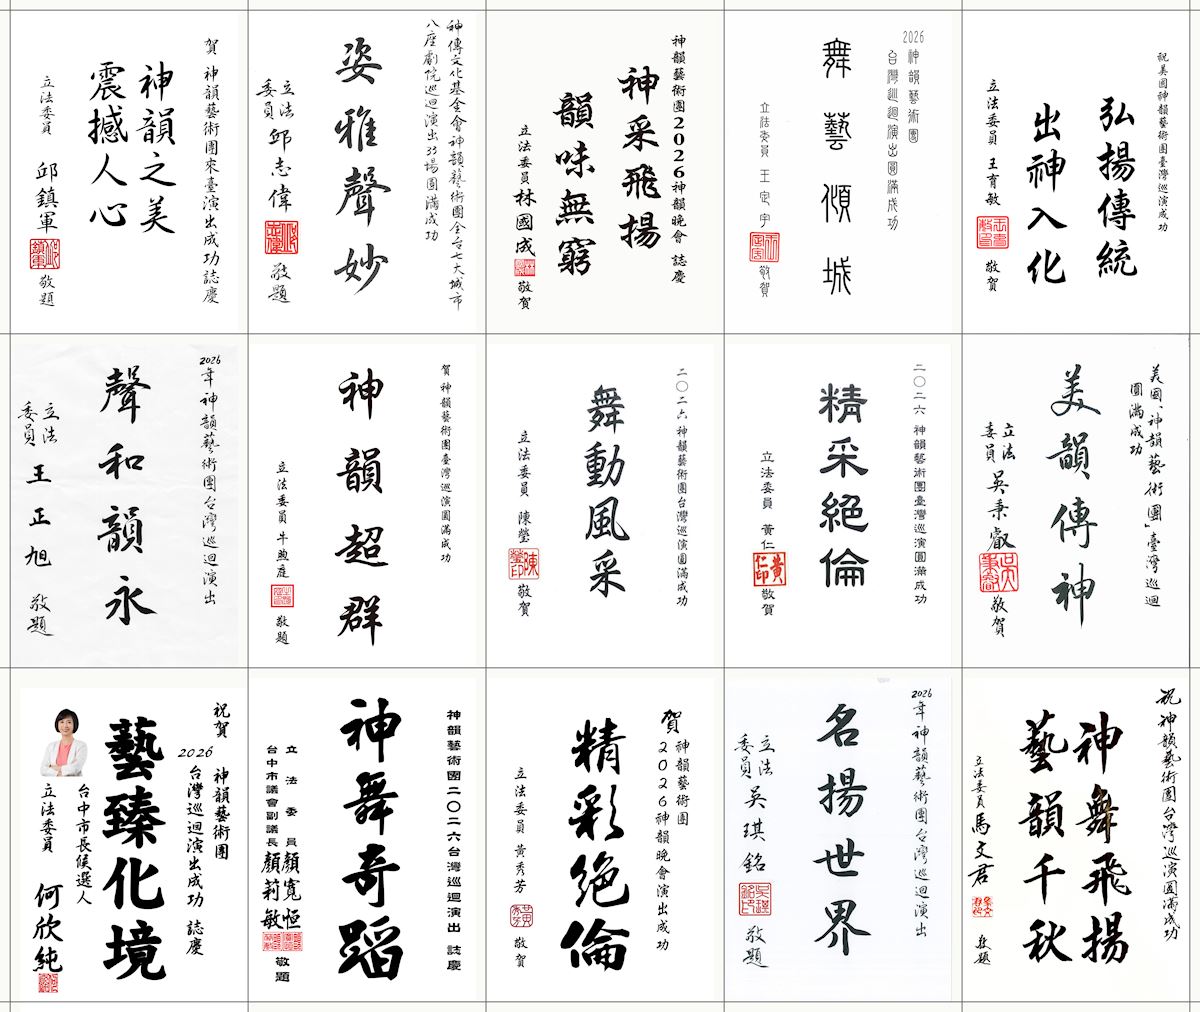 賀 神韻藝術團來臺演出成功誌慶
神韻之美
震撼人心
立法委員 邱鎮軍 敬題
神傳文化基金會神韻藝術團全台七大城市
八座劇院巡迴演出33場圓滿成功
姿雅聲妙
立法委員 邱志偉 敬題
神韻藝術團2026神韻晚會 誌慶
神采飛揚
韻味無窮
立法委員 林國成 敬賀
2026 神韻藝術團
台灣巡迴演出圓滿成功
舞藝傾城
立法委員 王定宇 敬賀
祝美國神韻藝術團臺灣巡演成功
弘揚傳統
出神入化
立法委員 王育敏 敬賀
2026年神韻藝術團台灣巡迴演出
聲和韻永
立法委員 王正旭 敬題
賀 神韻藝術團臺灣巡演圓滿成功
神韻超群
立法委員 牛煦庭 敬題
二〇二六神韻藝術團台灣巡演圓滿成功
舞動風采
立法委員 陳瑩 敬賀
二〇二六 神韻藝術團臺灣巡演圓滿成功
精采絕倫
立法委員 黃仁 敬賀
美國「神韻藝術團」臺灣巡迴
圓滿成功
美韻傳神
立法委員 吳秉叡 敬賀
祝賀 神韻藝術團
2026 台灣巡迴演出成功 誌慶
藝臻化境
台中市長候選人
立法委員 何欣純
神韻藝術團二〇二六台灣巡迴演出 誌慶
神舞奇蹈
立法委員 顏寬恒
台中市議會副議長 顏莉敏 敬題
賀 神韻藝術團
2026神韻晚會演出成功
精彩絕倫
立法委員 黃秀芳 敬賀
2026年神韻藝術團台灣巡迴演出
名揚世界
立法委員 吳琪銘 敬題
祝神韻藝術團台灣巡演圓滿成功
神舞飛揚
藝韻千秋
立法委員 馬文君 敬題